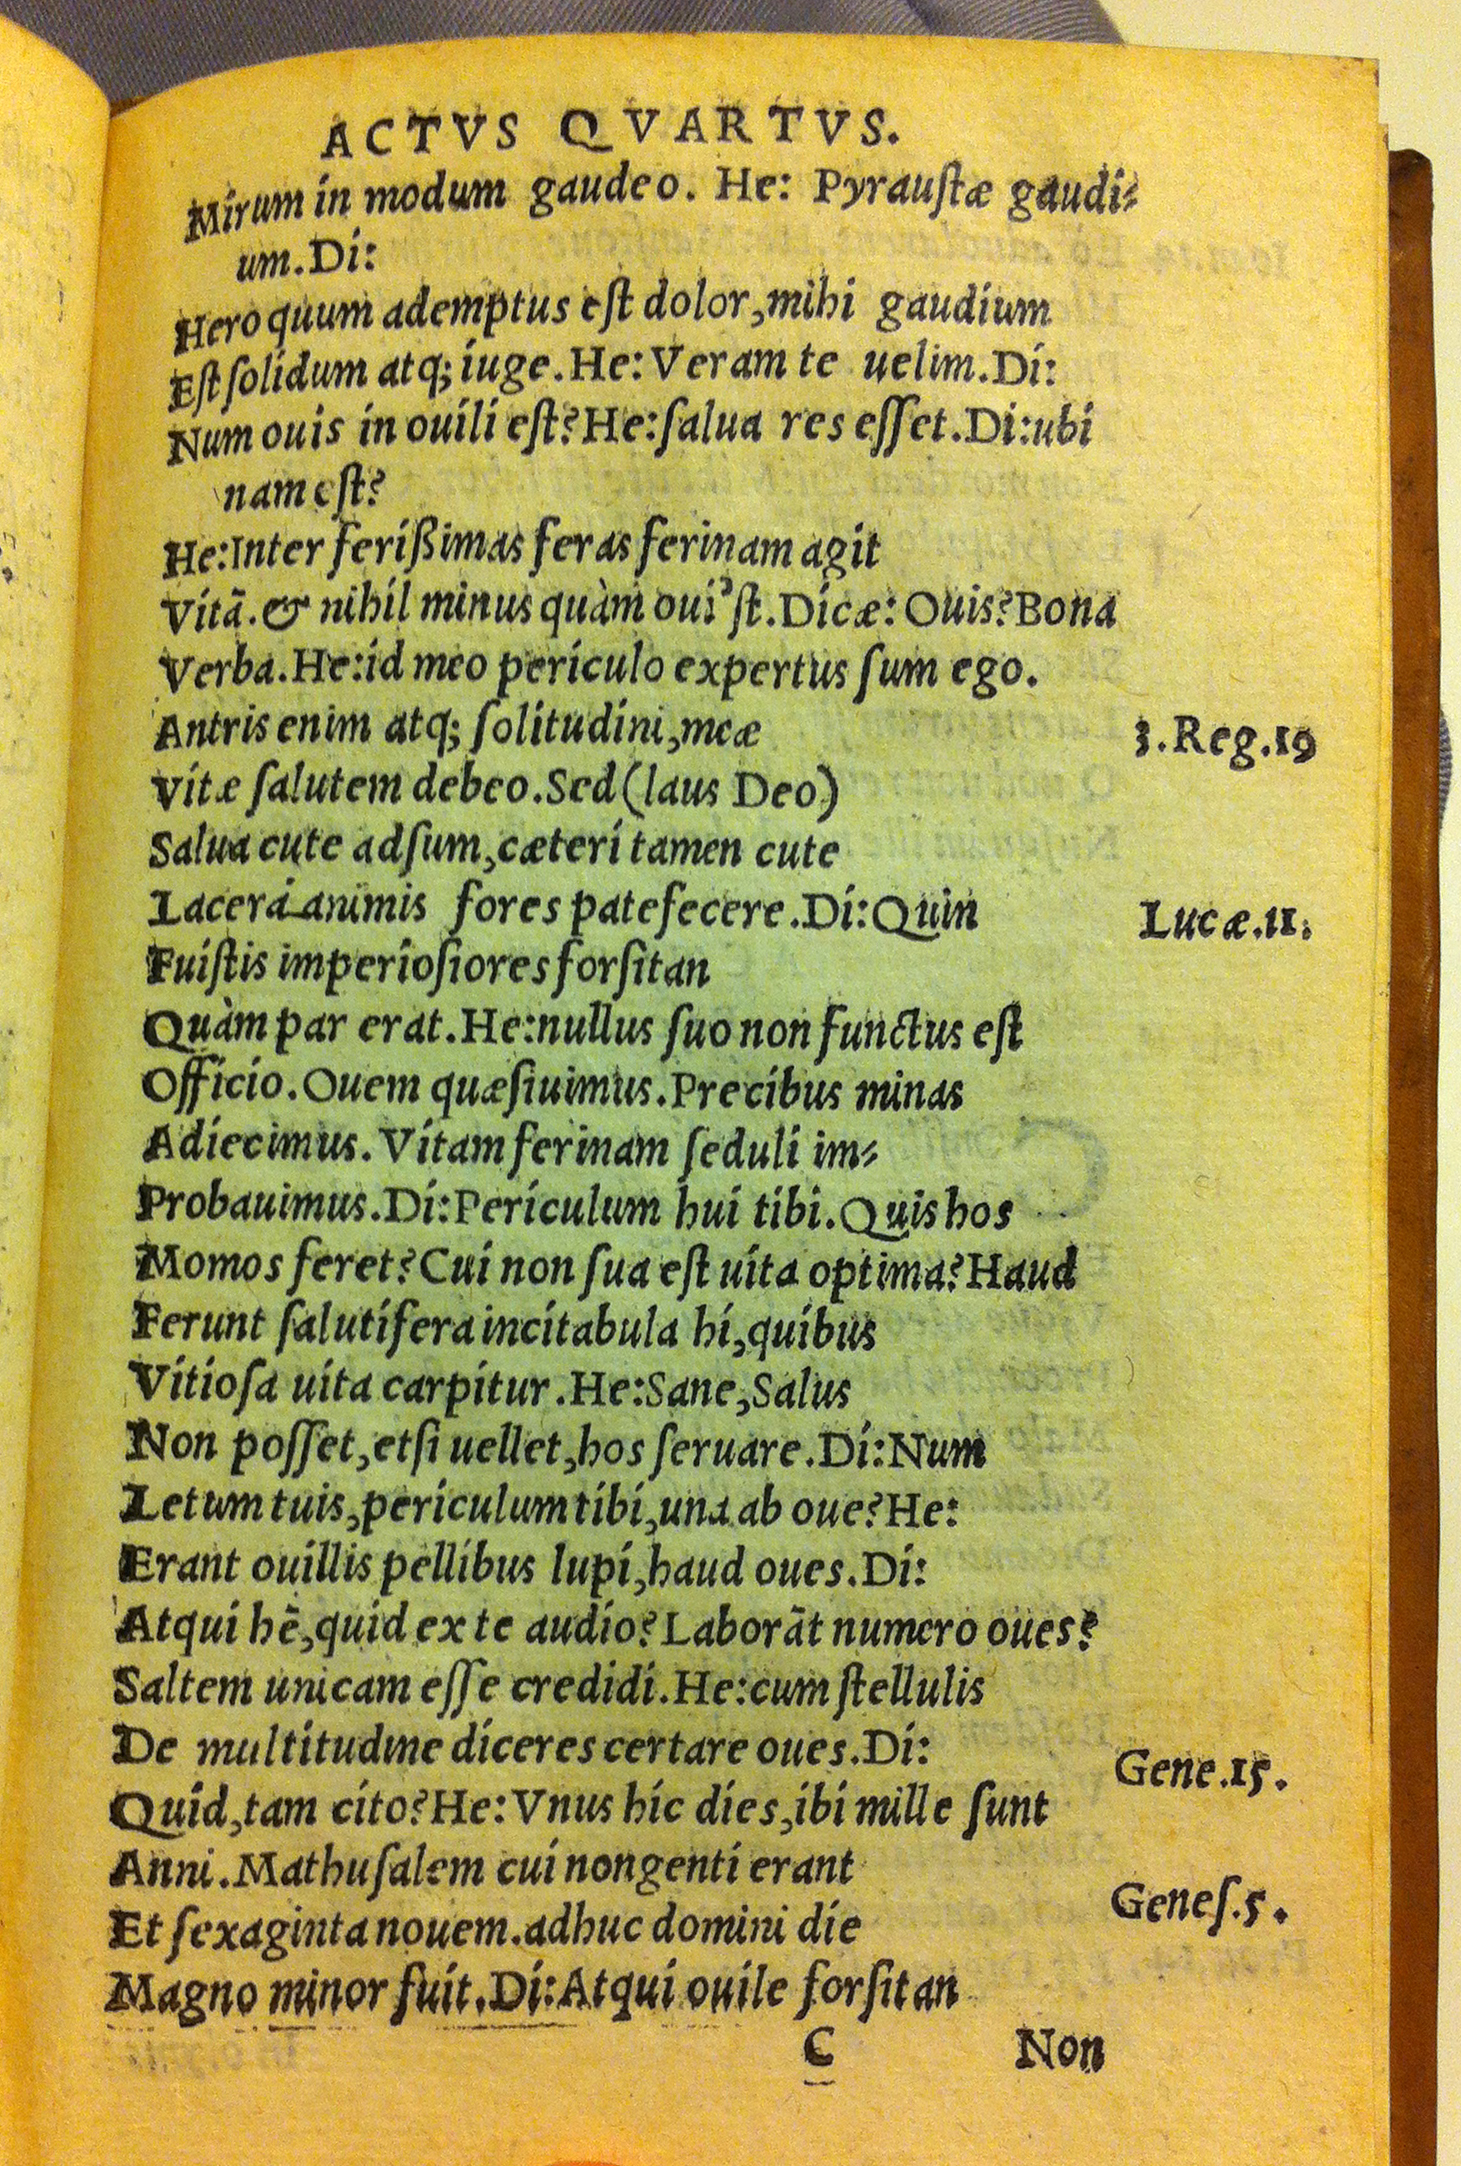 ACTVS QVARTVS.
Mirum in modum gaudeo. He: Pyraustæ gaudi-
um. Di:
Hero quum ademptus est dolor, mihi gaudium
Est solidum atq; iuge. He: Veram te uelim. Di:
Num ouis in ouili est? He: salua res esset. Di: ubi
nam est?
He: Inter ferißimas feras ferinam agit
Vitā. & nihil minus quàm oui'st. Dicæ: Ouis? Bona
Verba. He: id meo periculo expertus sum ego.
Antris enim atq; solitudini, meæ
3. Reg. 19
Vitæ salutem debeo. Sed (laus Deo)
Salua cute adsum, cæteri tamen cute
Lacera animis fores patefecere. Di: Quin
Lucæ. 11.
Fuistis imperiosiores forsitan
Quàm par erat. He: nullus suo non functus est
Officio. Ouem quæsiuimus. Precibus minas
Adiecimus. Vitam ferinam seduli im-
Probauimus. Di: Periculum hui tibi. Quis hos
Momos feret? Cui non sua est uita optima? Haud
Ferunt salutifera incitabula hi, quibus
Vitiosa uita carpitur. He: Sane, Salus
Non posset, etsi uellet, hos seruare. Di: Num
Letum tuis, periculum tibi, una ab oue? He:
Erant ouillis pellibus lupi, haud oues. Di:
Atqui hē, quid ex te audio? Laborāt numero oues?
Saltem unicam esse credidi. He: cum stellulis
De multitudine diceres certare oues. Di:
Gene. 15.
Quid, tam cito? He: Vnus hic dies, ibi mille sunt
Anni. Mathusalem cui nongenti erant
Genes. 5.
Et sexaginta nouem. adhuc domini die
Magno minor fuit. Di: Atqui ouile forsitan
C Non